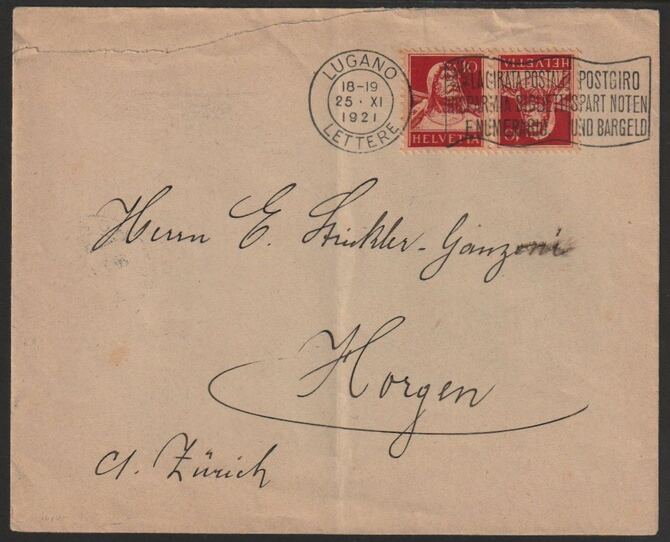 LUGANO
18-19
25·XI
1921
LETTERE
10
HELVETIA
HELVETIA
10
LA GIRATA POSTALE
RISPARMIA BIGLIETTI
E NUMERARIO
POSTGIRO
SPART NOTEN
UND BARGELD
Herrn E. Strickler-Ganzoni
Horgen
Ct. Zürich